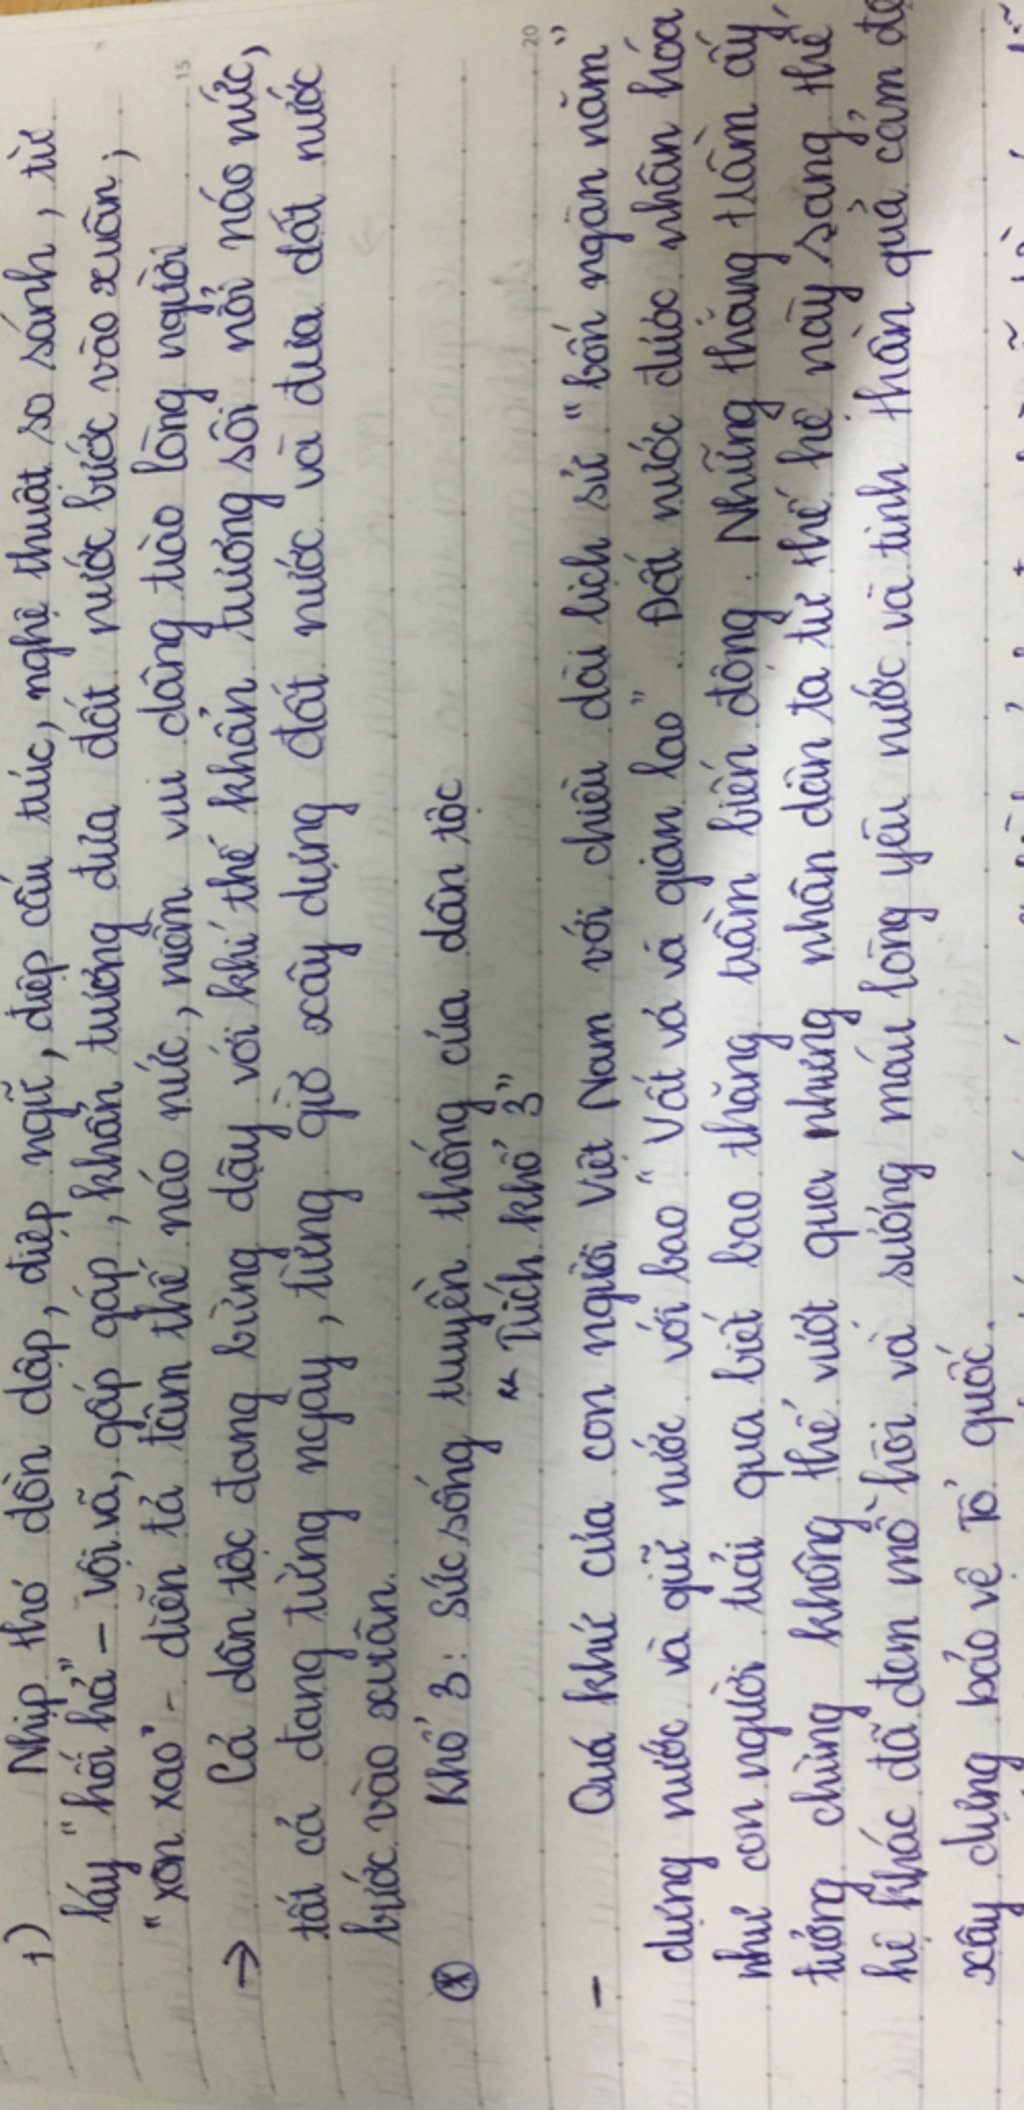 +) Nhịp thơ dồn dập, điệp ngữ, điệp cấu trúc, nghệ thuật so sánh, từ
láy "hối hả" - vội vã, gấp gáp, khẩn trương đưa đất nước bước vào xuân;
"xôn xao" - diễn tả tâm thế náo nức, niềm vui dâng trào lòng người
→ Cả dân tộc đang bừng dậy với khí thế khẩn trương sôi nổi náo nức,
tất cả đang từng ngày, từng giờ xây dựng đất nước và đưa đất nước
bước vào xuân.
* Khổ 3: Sức sống truyền thống của dân tộc
"Trích khổ 3"
- Quá khứ của con người Việt Nam với chiều dài lịch sử "bốn ngàn năm"
dựng nước và giữ nước với bao "Vất vả và gian lao". Đất nước được nhân hóa
như con người trải qua biết bao thăng trầm biến động. Những thăng trầm ấy
tưởng chừng không thể vượt qua nhưng nhân dân ta từ thế hệ này sang thế
hệ khác đã đem mồ hôi và xương máu lòng yêu nước và tinh thần quả cảm để
xây dựng bảo vệ Tổ quốc.
15
20